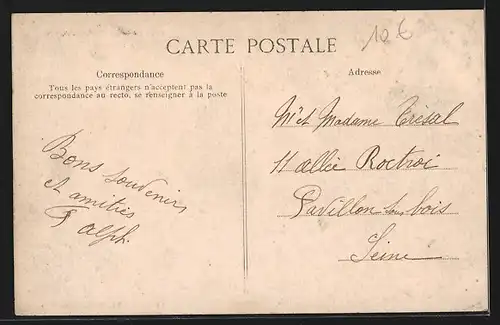 CARTE POSTALE
10 €
Correspondance
Tous les pays étrangers n'acceptent pas la
correspondance au recto, se renseigner à la poste
Adresse
Bons souvenirs
et amitiés
Mr et Madame Trésal
11 allée Rocroi
Pavillon sous bois
Seine